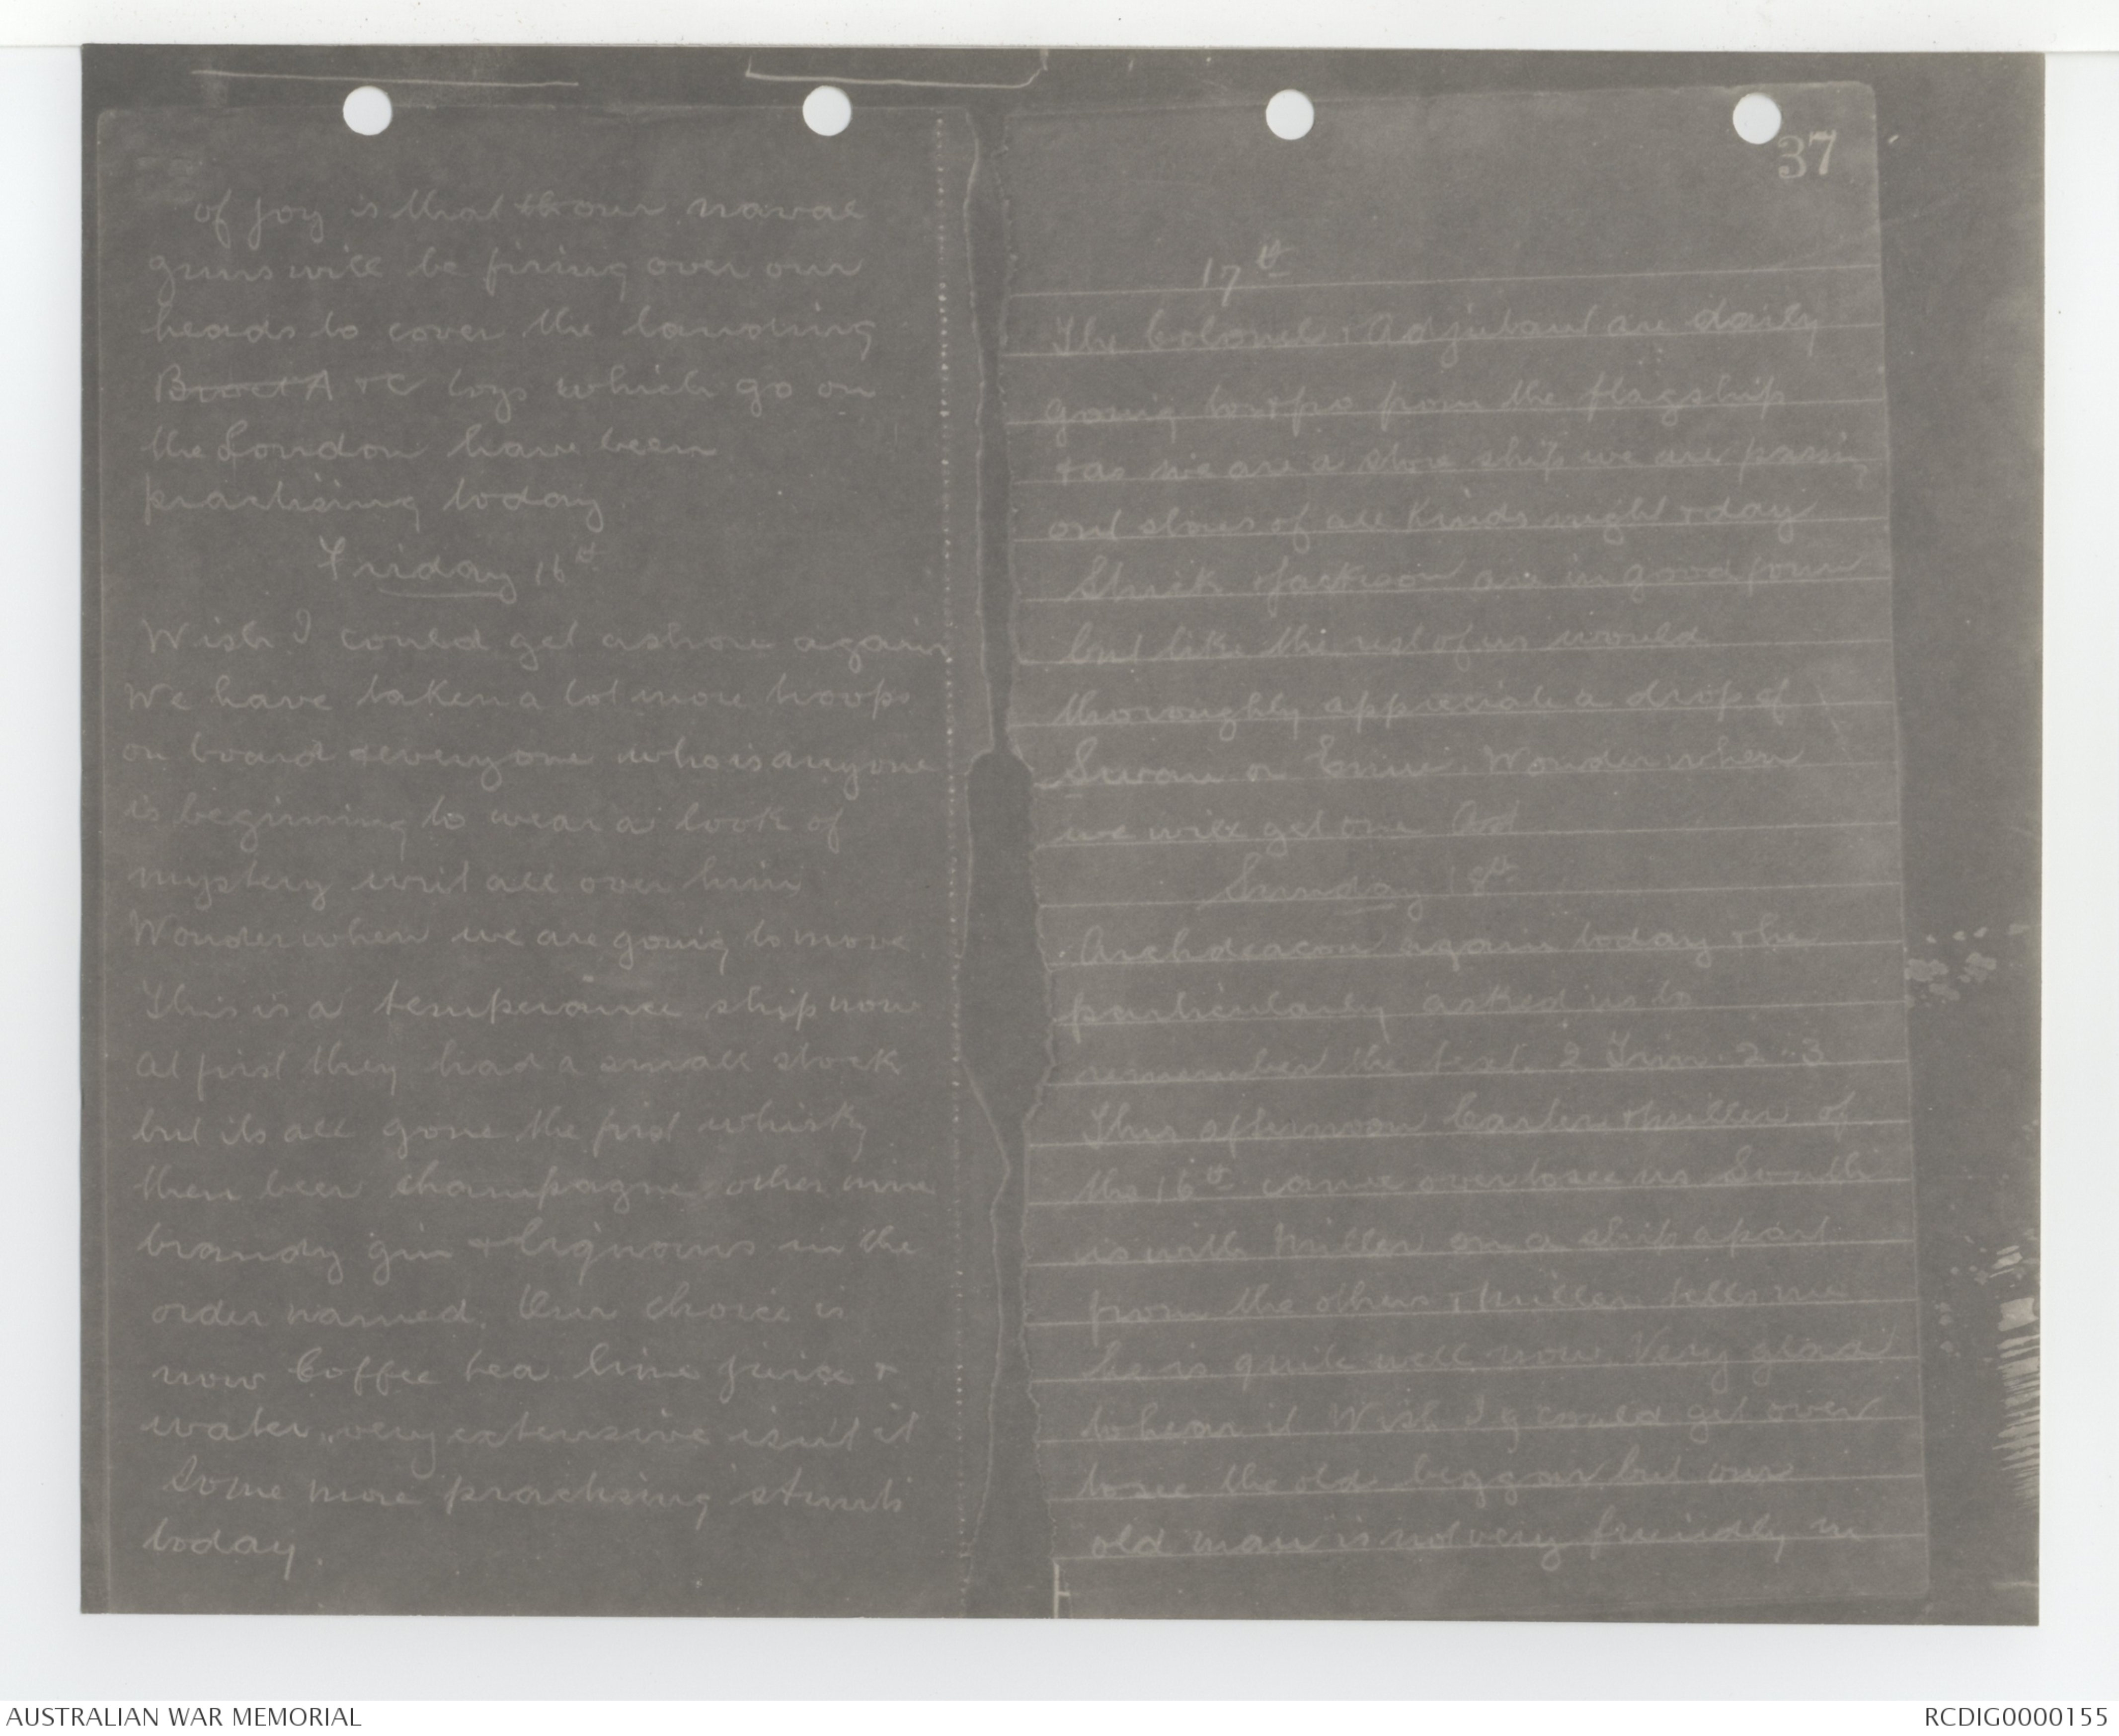 of joy is that our naval
guns will be firing over our
heads to cover the landing
A & C Coys which go on
the London have been
practising today
Friday 16th
Wish I could get ashore again
We have taken a lot more troops
on board & everyone who is anyone
is beginning to wear a look of
mystery writ all over him
Wonder when we are going to move
This is a temperance ship now
At first they had a small stock
but its all gone the first whisky
then beer champagne other wine
brandy gin & liquours in the
order named. Our choice is
now Coffee tea lime juice &
water, very extensive isn't it
Some more practising stunts
today.
37
17th
The Colonel & Adjutant are daily
going to & fro from the flagship
& as we are a store ship we are passing
out stores of all kinds night & day
& Jackson are in good form
but like the rest of us would
thoroughly appreciate a drop of
Swan or Emu. Wonder when
we will get one
Sunday 18th
Archdeacon again today & he
particularly asked us to
remember the text 2 Tim. 2 : 3
This afternoon Carter & Miller of
the 16th came over to see us Smith
is with Miller on a ship apart
from the others & Miller tells me
he is quite well now. Very glad
to hear it Wish I could get over
to see the old beggar but our
old man is not very friendly in